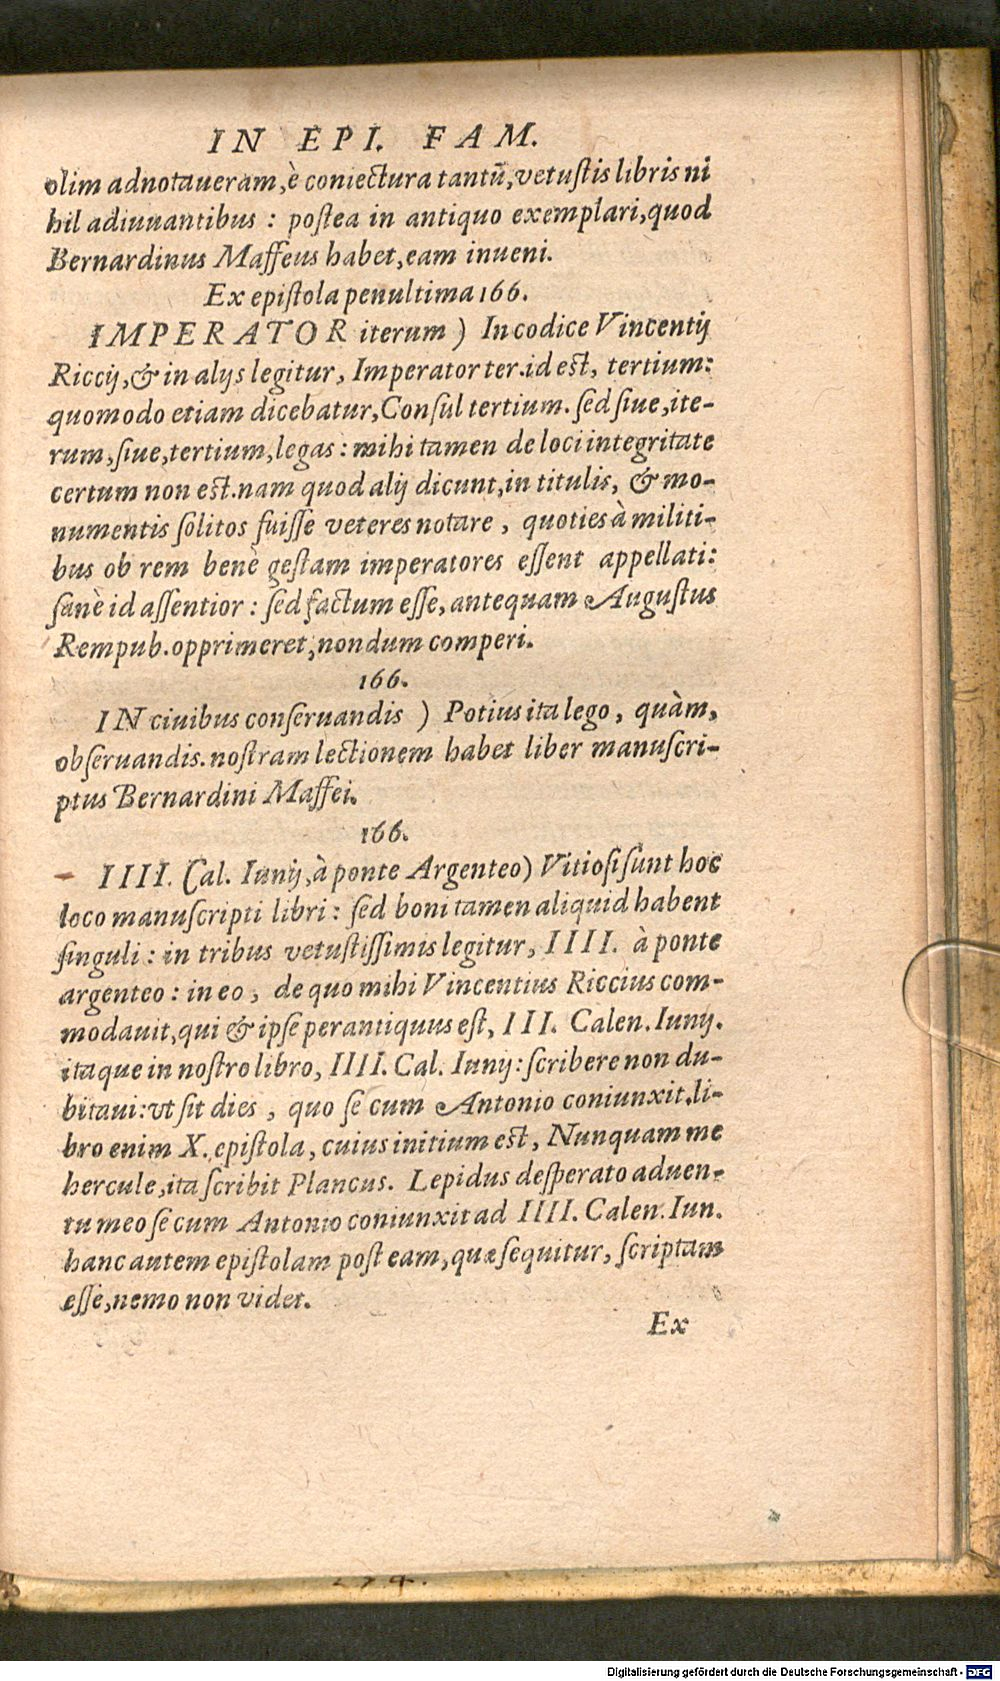 IN EPI. FAM.
olim adnotaueram, è coniectura tantū, vetuſtis libris ni
hil adiuuantibus : poſtea in antiquo exemplari, quod
Bernardinus Maffeus habet, eam inueni.
Ex epiſtola penultima 166.
IMPERATOR iterum ) In codice Vincentij
Riccij, & in alijs legitur, Imperator ter. id eſt, tertium:
quomodo etiam dicebatur, Conſul tertium. ſed ſiue, ite-
rum, ſiue, tertium, legas : mihi tamen de loci integritate
certum non eſt. nam quod alij dicunt, in titulis, & mo-
numentis ſolitos fuiſſe veteres notare , quoties à militi-
bus ob rem benè geſtam imperatores eſſent appellati:
ſanè id aſſentior : ſed factum eſſe, antequam Auguſtus
Rempub. opprimeret, nondum comperi.
166.
IN ciuibus conſeruandis ) Potius ita lego , quàm,
obſeruandis. noſtram lectionem habet liber manuſcri-
ptus Bernardini Maffei.
166.
IIII. Cal. Iunij, à ponte Argenteo) Vitioſi ſunt hoc
loco manuſcripti libri : ſed boni tamen aliquid habent
ſinguli : in tribus vetuſtiſſimis legitur, IIII. à ponte
argenteo : in eo , de quo mihi Vincentius Riccius com-
modauit, qui & ipſe perantiquus eſt, III. Calen. Iunij.
itaque in noſtro libro, IIII. Cal. Iunij: ſcribere non du-
bitaui: vt ſit dies , quo ſe cum Antonio coniunxit. li-
bro enim X. epiſtola, cuius initium eſt, Nunquam me
hercule, ita ſcribit Plancus. Lepidus deſperato aduen-
tu meo ſe cum Antonio coniunxit ad IIII. Calen. Iun.
hanc autem epiſtolam poſt eam, quæ ſequitur, ſcriptam
eſſe, nemo non videt.
Ex
Digitalisierung gefördert durch die Deutsche Forschungsgemeinschaft - DFG